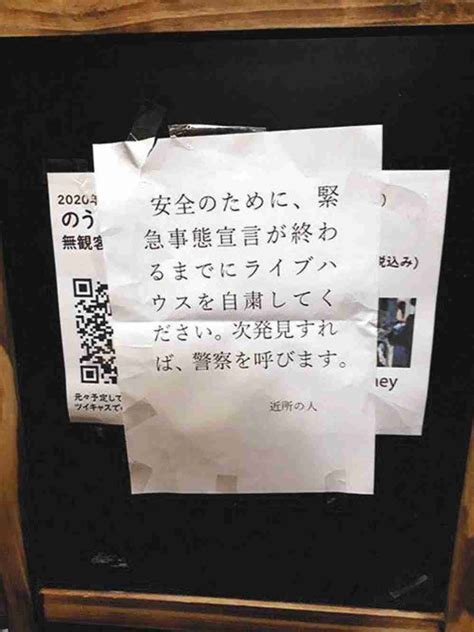 安全のために、緊
急事態宣言が終わ
るまでにライブハ
ウスを自粛してく
ださい。次発見すれ
ば、警察を呼びます。
近所の人
2020年
のう
無観客
元々予定して
ツイキャスで
税込み)
ney